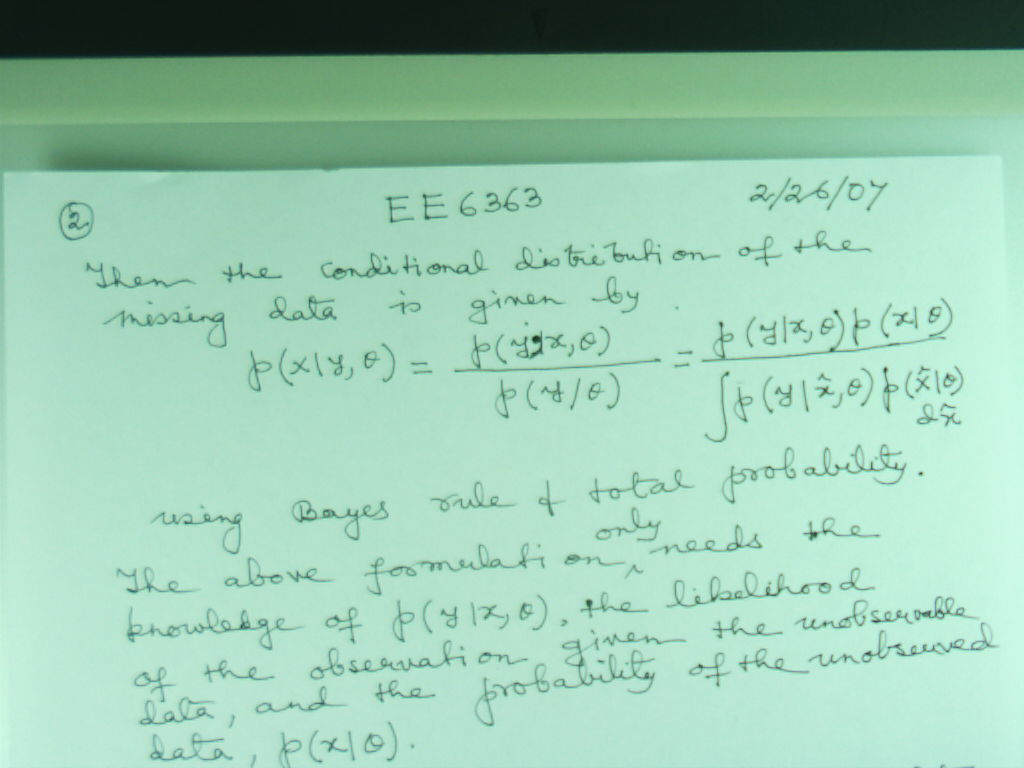 ② EE6363 2/26/07
Then the conditional distribution of the
missing data is given by
p(x|y,θ) = p(y,x,θ) / p(y/θ) = p(y|x,θ)p(x|θ) / ∫p(y|x̂,θ)p(x̂|θ) dx̂
using Bayes rule & total probability.
The above formulation only needs the
knowledge of p(y|x,θ), the likelihood
of the observation given the unobservable
data, and the probability of the unobserved
data, p(x|θ).